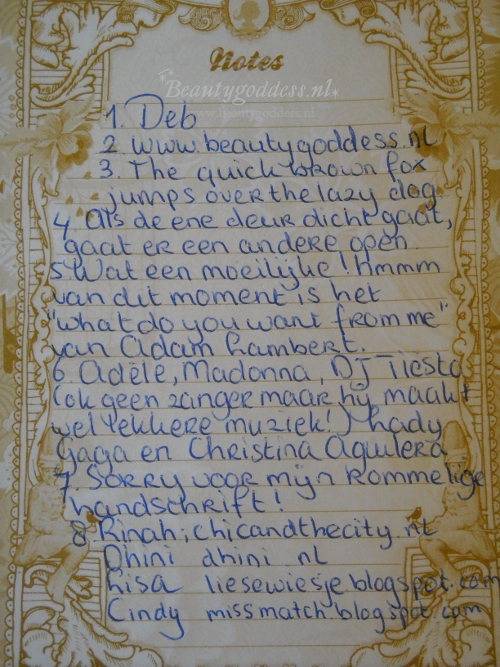 Notes
Beautygoddess.nl
www.beautygoddess.nl
1. Deb
2 www.beautygoddess.nl
3. The quick brown fox
jumps over the lazy dog
4 Als de ene deur dicht gaat,
gaat er een andere open
5 Wat een moeilijke! hmmm
van dit moment is het
"what do you want from me"
van Adam Lambert.
6. Adèle, Madonna, DJ Tiësto
(ok geen zanger maar hij maakt
wel lekkere muziek!) Lady
Gaga en Christina Aguilera
7. Sorry voor mijn rommelige
handschrift!
8 Rinah; chicandthecity.nl
Dhini dhini nl
Lisa liesewiesje.blogspot.com
Cindy missmatch.blogspot.com